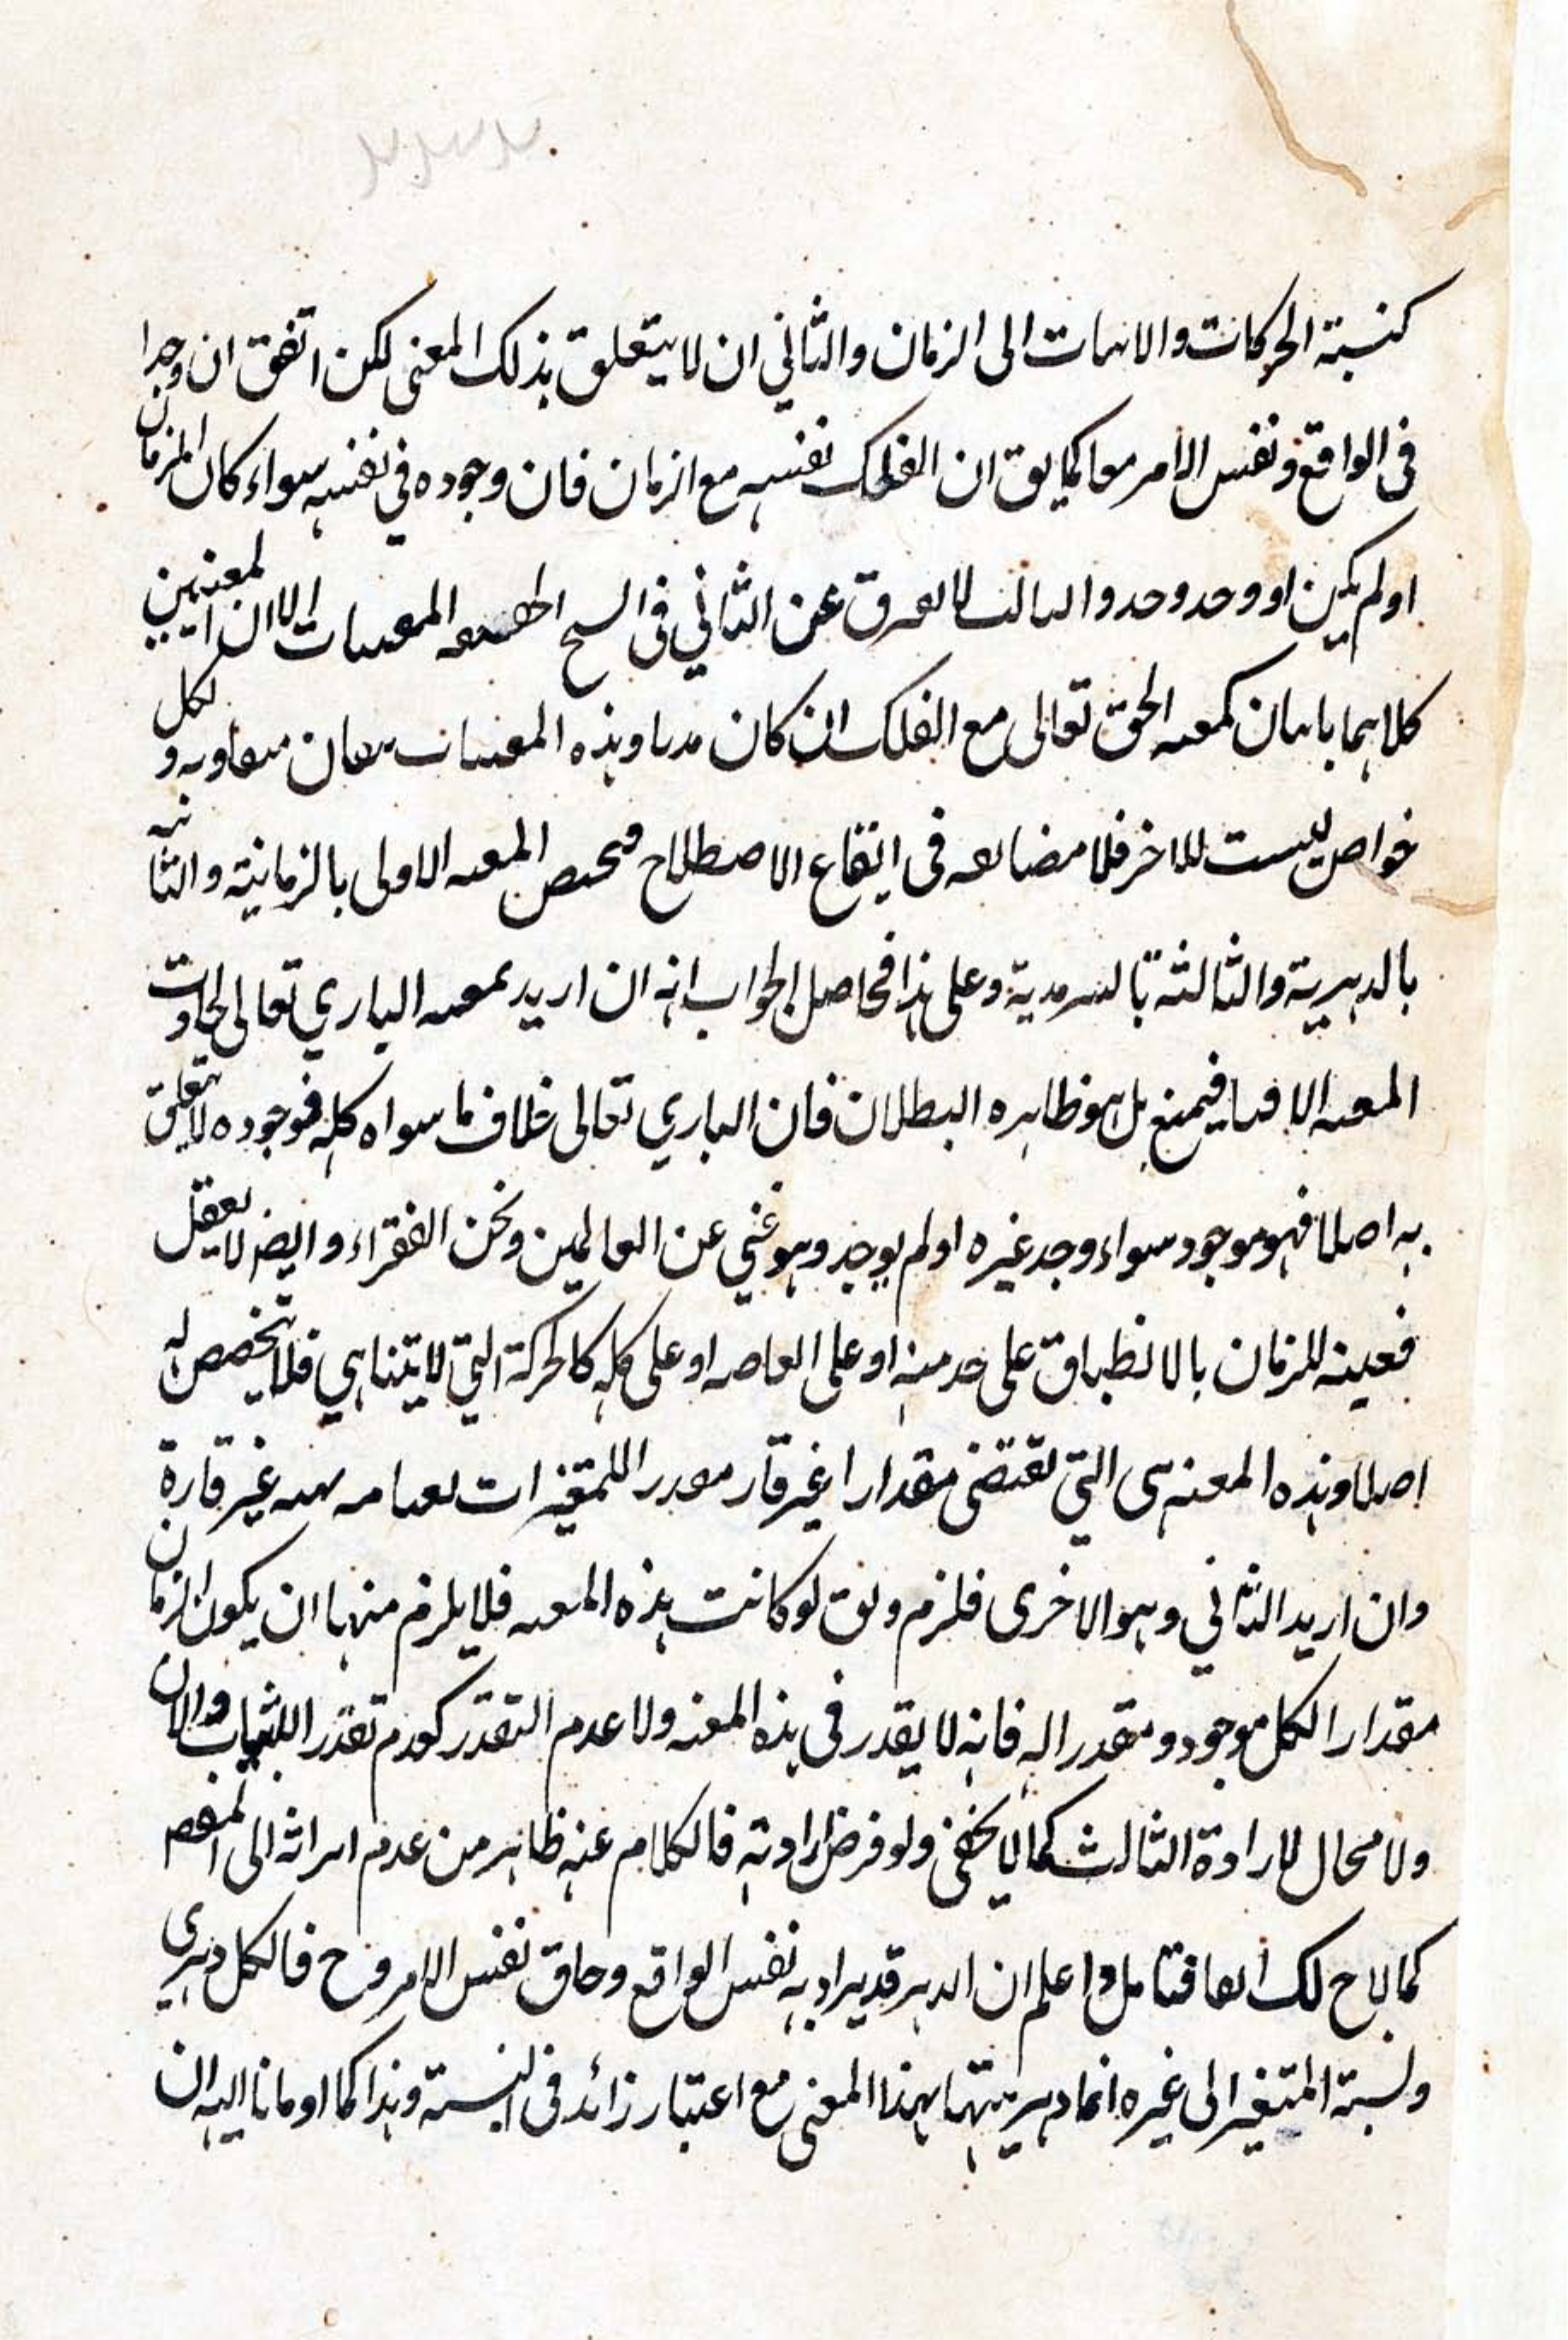 كنسبة الحركات والانات الى الزمان والثاني ان لا يتعلق بذلك المعنى لكن اتفق ان وجدا
فى الواقع ونفس الامر معا كما يق ان الفلك نفسه مع الزمان فان وجوده في نفسه سواء كان الزمان
او لم يكن او وحد وحد والثالث لا يفرق عن الثاني فى المعيات الا ان المعنيين
كلاهما كمعيه الحق تعالى مع الفلك ان كان وهذه المعيات ولكل
خواص ليست للاخر فلا مضايقه فى ايقاع الاصطلاح فيخص المعيه الاولى بالزمانية والثانيه
بالدهرية والثالثة بالسرمدية وعلى هذا فحاصل الجواب انه ان اريد بمعيه الباري تعالى الحوادث
المعيه فيمنع بل هو ظاهره البطلان فان الباري تعالى خلاف ما سواه كله فوجوده لا يتعلق
به اصلا فهو موجود سواء وجد غيره او لم يوجد وهو غني عن العالمين ونحن الفقراء وايضا لا يعقل
فعينه للزمان بالانطباق على حد منه او على او على كله كالحركة التي لا يتناهي فلا تخصص له
اصلا وهذه المعنه هى التي تقتضى مقدارا غير قار للمتغيرات غير قارة
وان اريد الثاني وهو الاخرى فلزم ونق لو كانت هذه المعيه فلا يلزم منها ان يكون الزمان
مقدارا لكل موجود ومتقدرا له فانه لا يقدر فى هذه المعنه ولا عدم التقدر كعدم تقدر الثياب والان
ولا محال لارادة الثالث كما لا يخفى ولو فرض ارادته فالكلام عنه ظاهر من عدم الى
كما لاح لك انفا فتامل واعلم ان الدهر قد يراد به نفس الواقع وحاق نفس الامر وح فالكل دهرى
ونسبة المتغير الى غيره انما دهريتها بهذا المعنى مع اعتبار زائد فى النسبة وهذا كما اومانا اليه ان